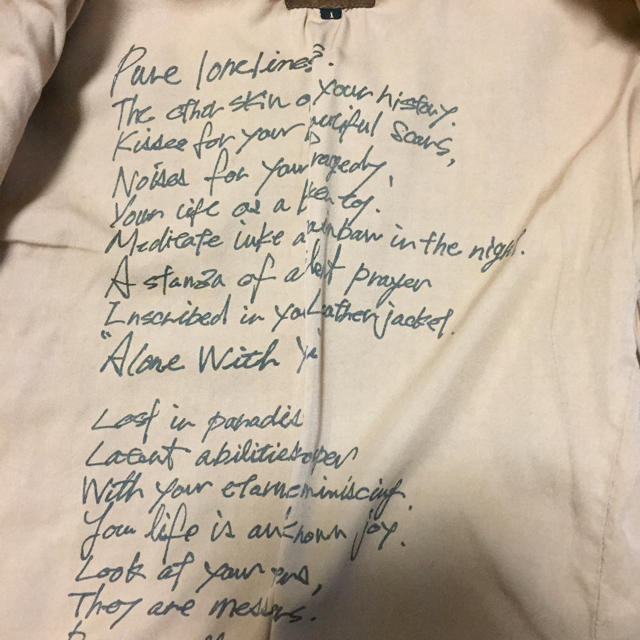 1
Pure loneliness.
The other skin o your history.
Kisses for your merciful Scars,
Noises for your tragedy,
Your life as a
Medicate like a rainbow in the night.
A stanza of a lost prayer
Inscribed in you Leather jacket.
"Alone With Yo
Lost in paradis
Latent abilities open
With your miniscing.
Your life is unknown joy.
Look at your
They are